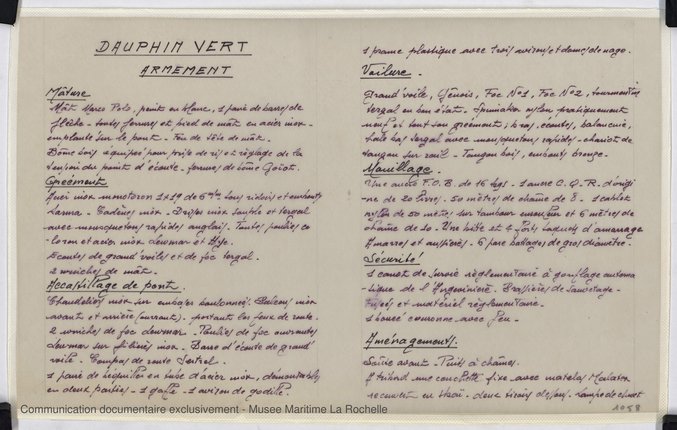 DAUPHIN VERT
ARMEMENT
Mâture
Mât Marco Polo, peint en blanc, 1 paire de barres de
flèche - toutes ferrures et pied de mât en acier inox -
emplanté sur le pont - Feu de tête de mât.
Bôme bois équipée pour prise de ris et réglage de la
tension du point d'écoute - ferrures de bôme Goïot.
Greement
Acier inox monotoron 1x19 de 6 m/m tous ridoirs et embouts
Larma - Cadènes inox - Drisses inox souple et tergal
avec mousquetons rapides anglais. Toutes poulies co-
loron et acier inox Lewmar et
Ecoutes de grand'voiles et de foc tergal.
2 winches de mât.
Accastillage de pont.
Chandeliers inox sur embases boulonnés. Balcons inox
avant et arrière (ouvrant), portant les feux de route.
2 winches de foc Lewmar - Poulies de foc ouvrantes
Lewmar sur filières inox - Barre d'écoute de grand'
voile - Compas de route Sestrel.
1 paire de béquilles en tube d'acier inox, démontables
en deux parties - 1 gaffe - 1 aviron de godille.
1 prame plastique avec trois avirons et dames de nage.
Voilure.
Grand'voile, Génois, Foc N°1, Foc N°2, tourmentin
tergal en bon état. Spinnaker nylon pratiquement
neuf et tout son gréement ; bras, écoutes, balancine,
hale bas tergal avec mousquetons rapides - chariot de
tangon sur rail - Tangon bois, embouts bronze.
Mouillage.
Une ancre F.O.B. de 16 kgs - 1 ancre C.Q.R. d'origi-
ne de 20 livres. 50 mètres de chaîne de 8. 1 câblot
nylon de 50 mètres sur tambour et 6 mètres de
chaîne de 10. Une bitte et 4 forts taquets d'amarrage
Amarres et aussières - 6 pare battages de gros diamètre.
Sécurité
1 canot de survie règlementaire à gonflage automa-
-tique de l'Angevinière. Brassières de sauvetage -
Fusées et matériel règlementaire.
1 bouée couronne avec feu.
Aménagements.
Soute avant - Puits à chaînes.
A tribord une couchette fixe avec matelas
recouvert en skaï - deux tiroirs dessous - lampe de chevet
1058
Communication documentaire exclusivement - Musee Maritime La Rochelle